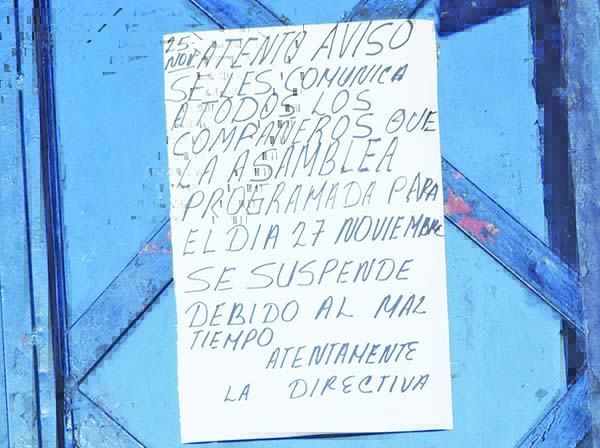 25. NOV ATENTO AVISO
SE LES COMUNICA
A TODOS LOS
COMPAÑEROS QUE
LA ASAMBLEA
PROGRAMADA PARA
EL DIA 27 NOVIEMBRE
SE SUSPENDE
DEBIDO AL MAL
TIEMPO
ATENTAMENTE
LA DIRECTIVA